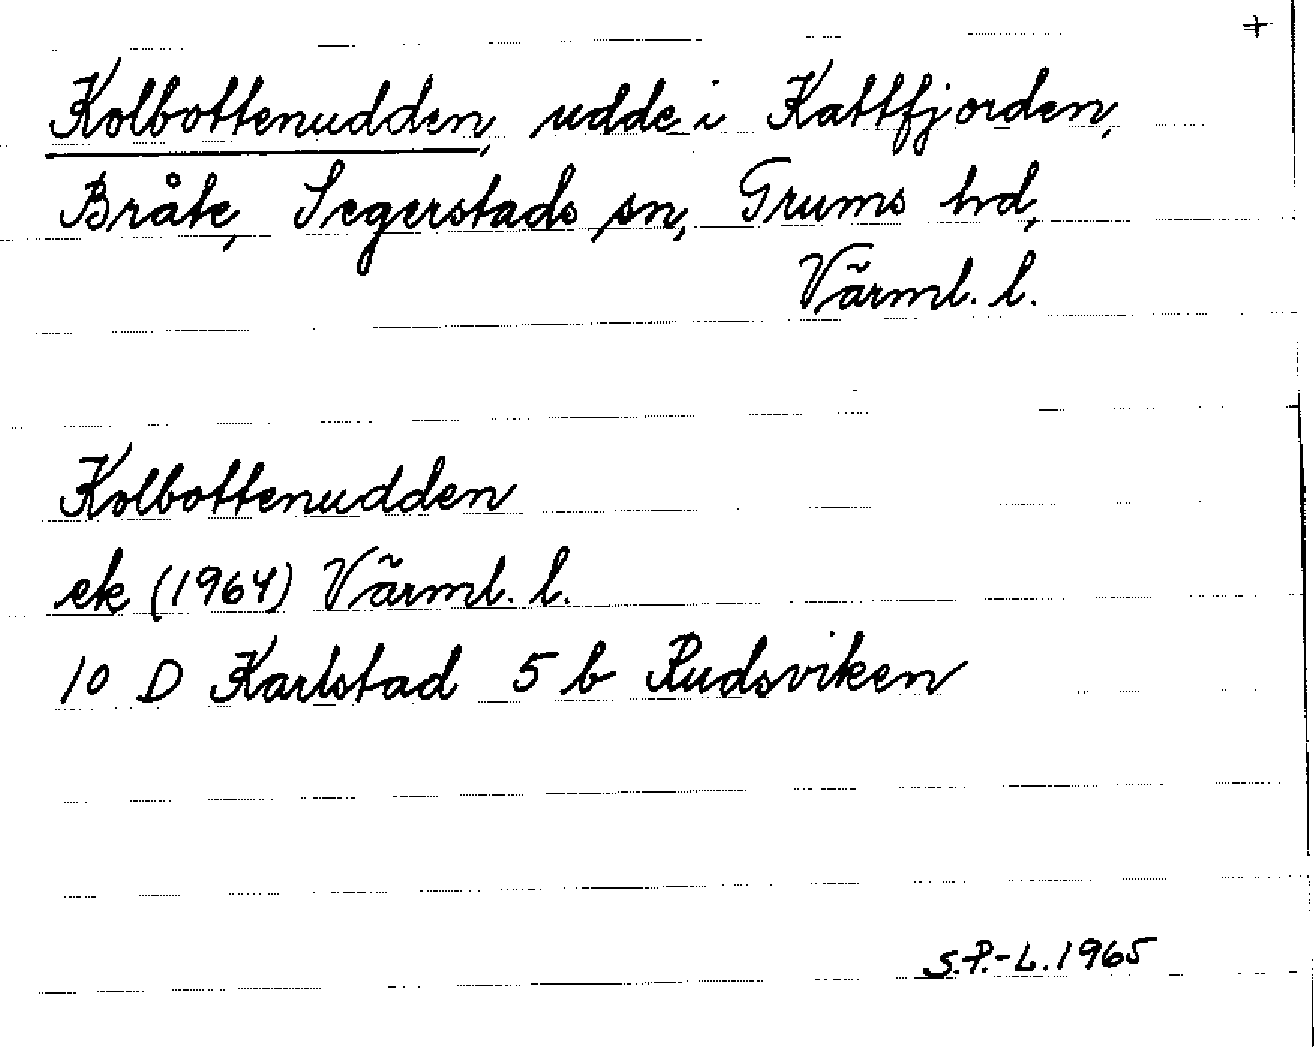 +
Kolbottenudden, udde i Kattfjorden,
Bråte, Segerstads sn, Grums hd,
Värml. l.
Kolbottenudden
ek (1964) Värml. l.
10 D Karlstad 5 b Rudsviken
S.P.-L. 1965